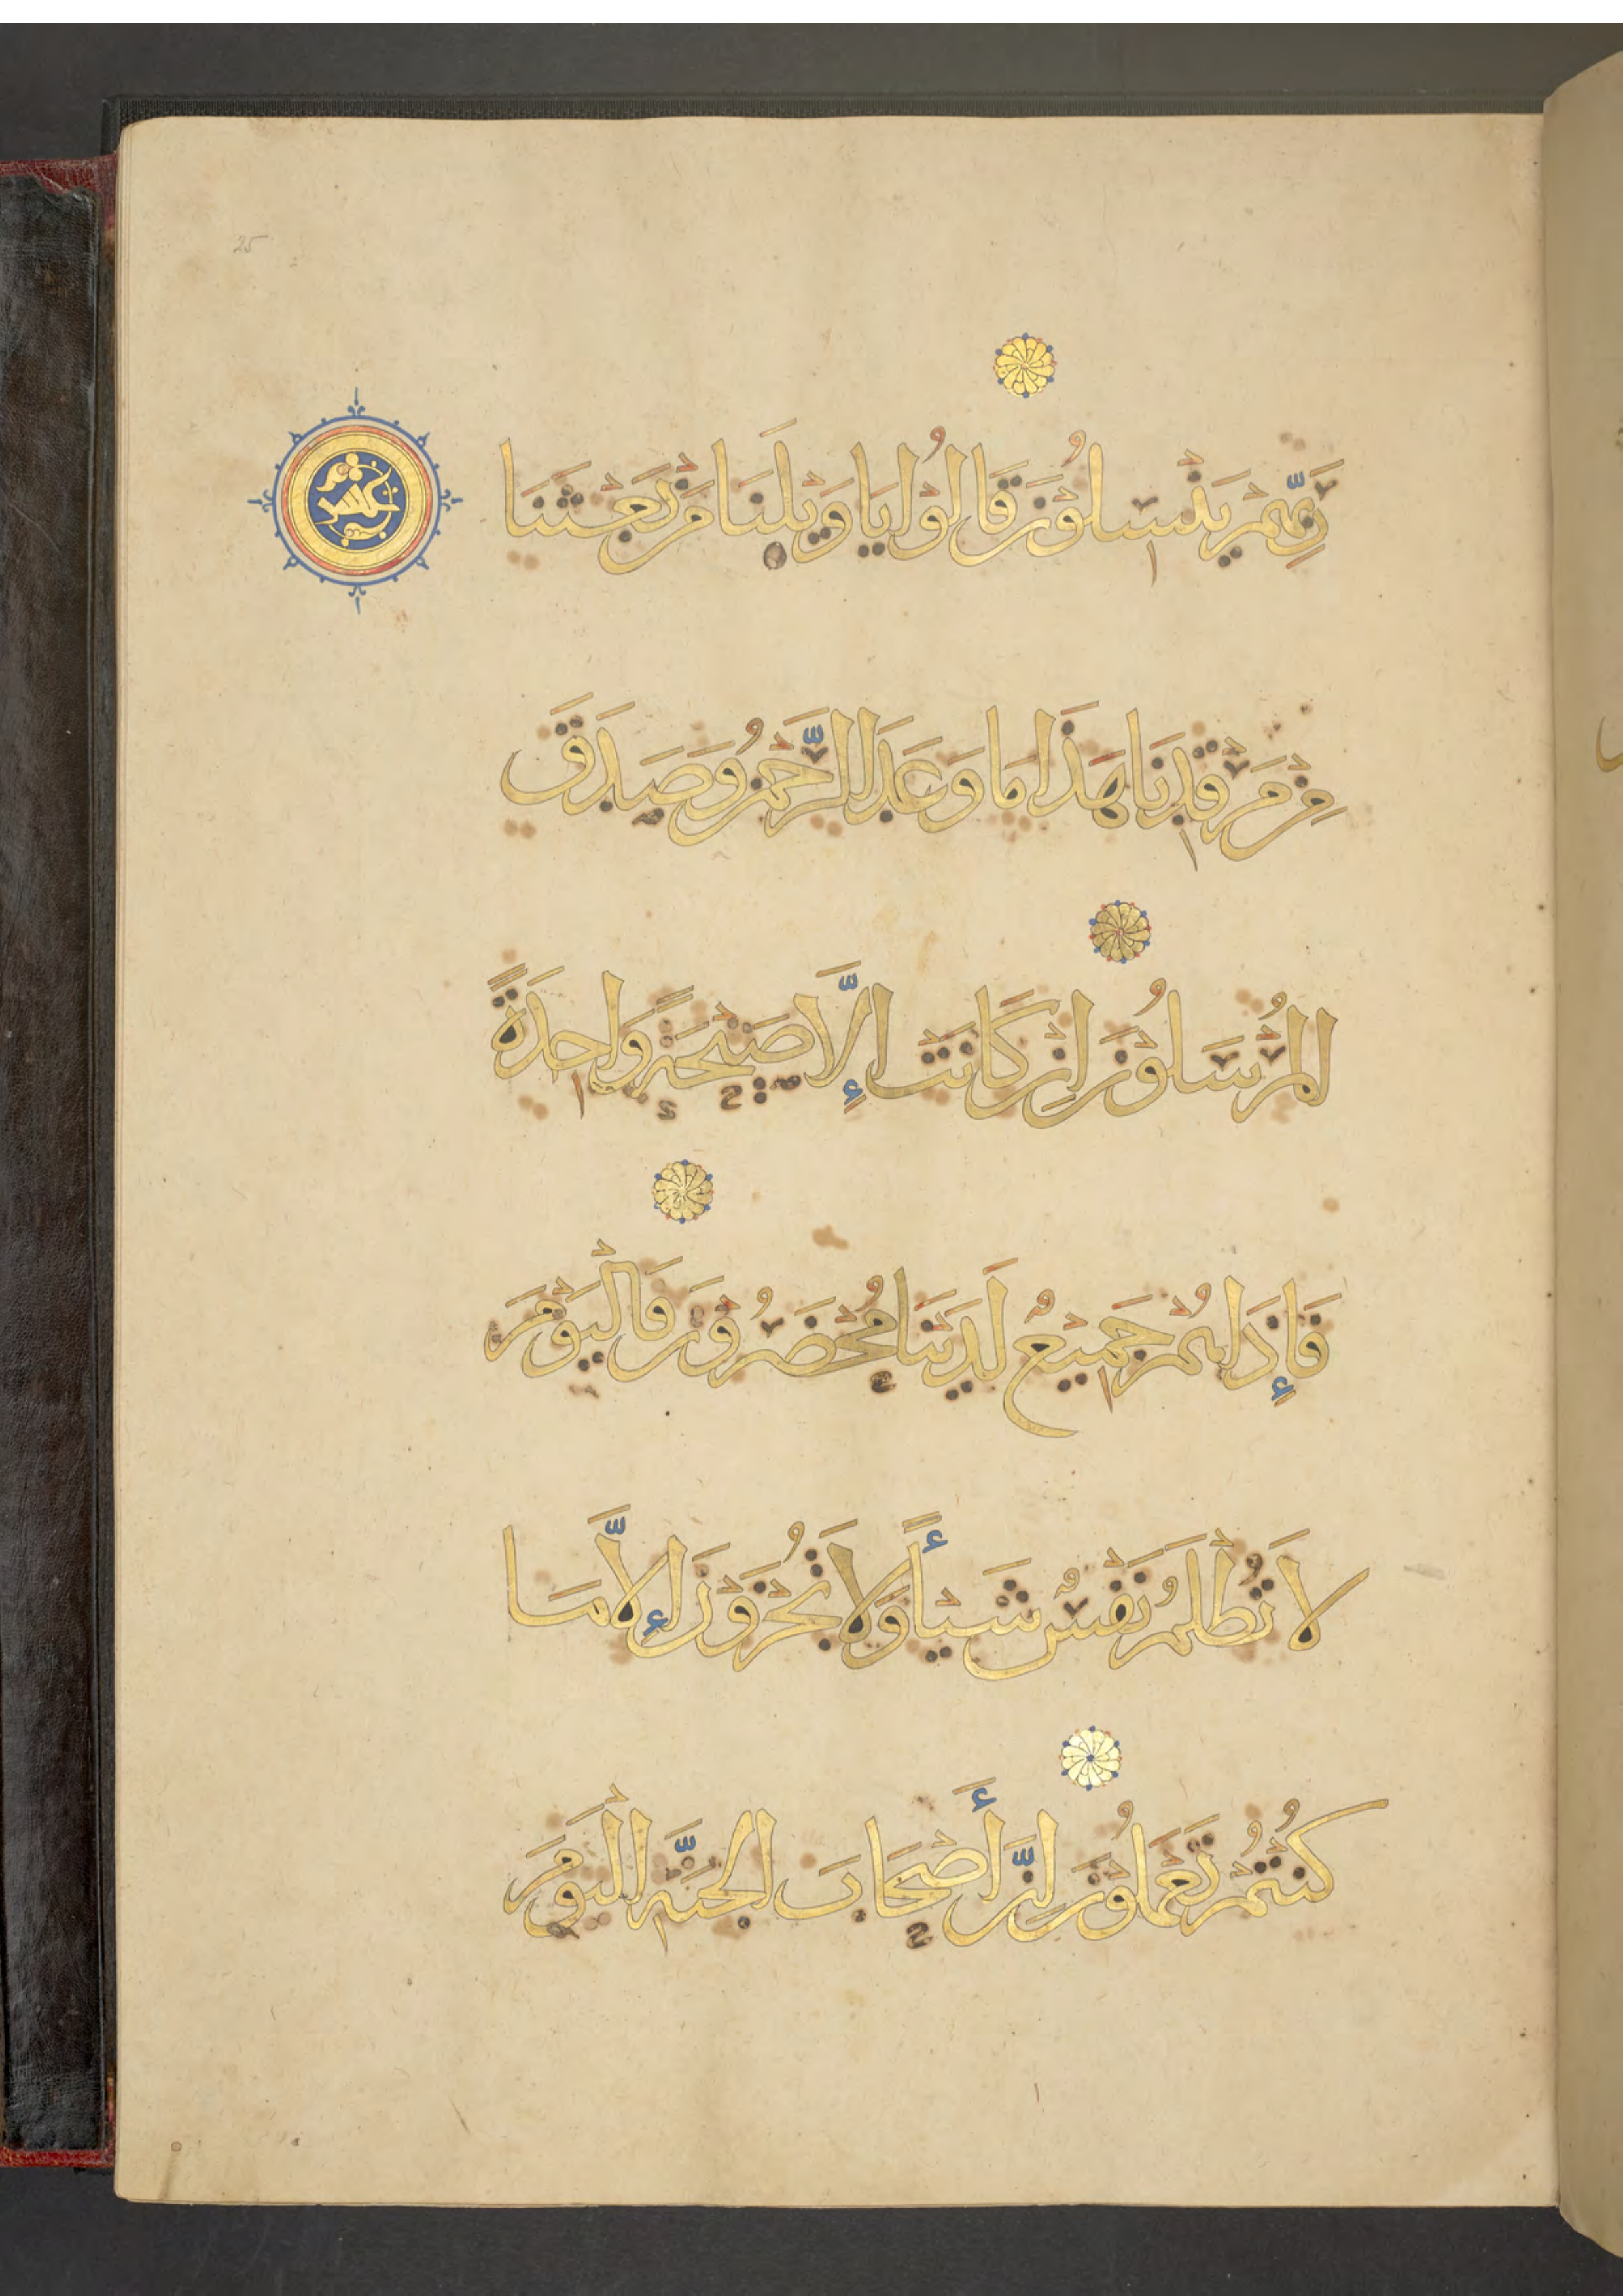 25
رَبِّهِمْ يَنْسِلُوْنَ قَالُوْا يَا وَيْلَنَا مَنْ بَعَثَنَا
مِنْ مَرْقَدِنَا هَذَا مَا وَعَدَ الرَّحْمٰنُ وَصَدَقَ
الْمُرْسَلُوْنَ إِنْ كَانَتْ إِلَّا صَيْحَةً وَاحِدَةً
فَإِذَا هُمْ جَمِيْعٌ لَدَيْنَا مُحْضَرُوْنَ فَالْيَوْمَ
لَا تُظْلَمُ نَفْسٌ شَيْأً وَلَا تُجْزَوْنَ إِلَّا مَا
كُنْتُمْ تَعْمَلُوْنَ إِنَّ أَصْحَابَ الْجَنَّةِ الْيَوْمَ